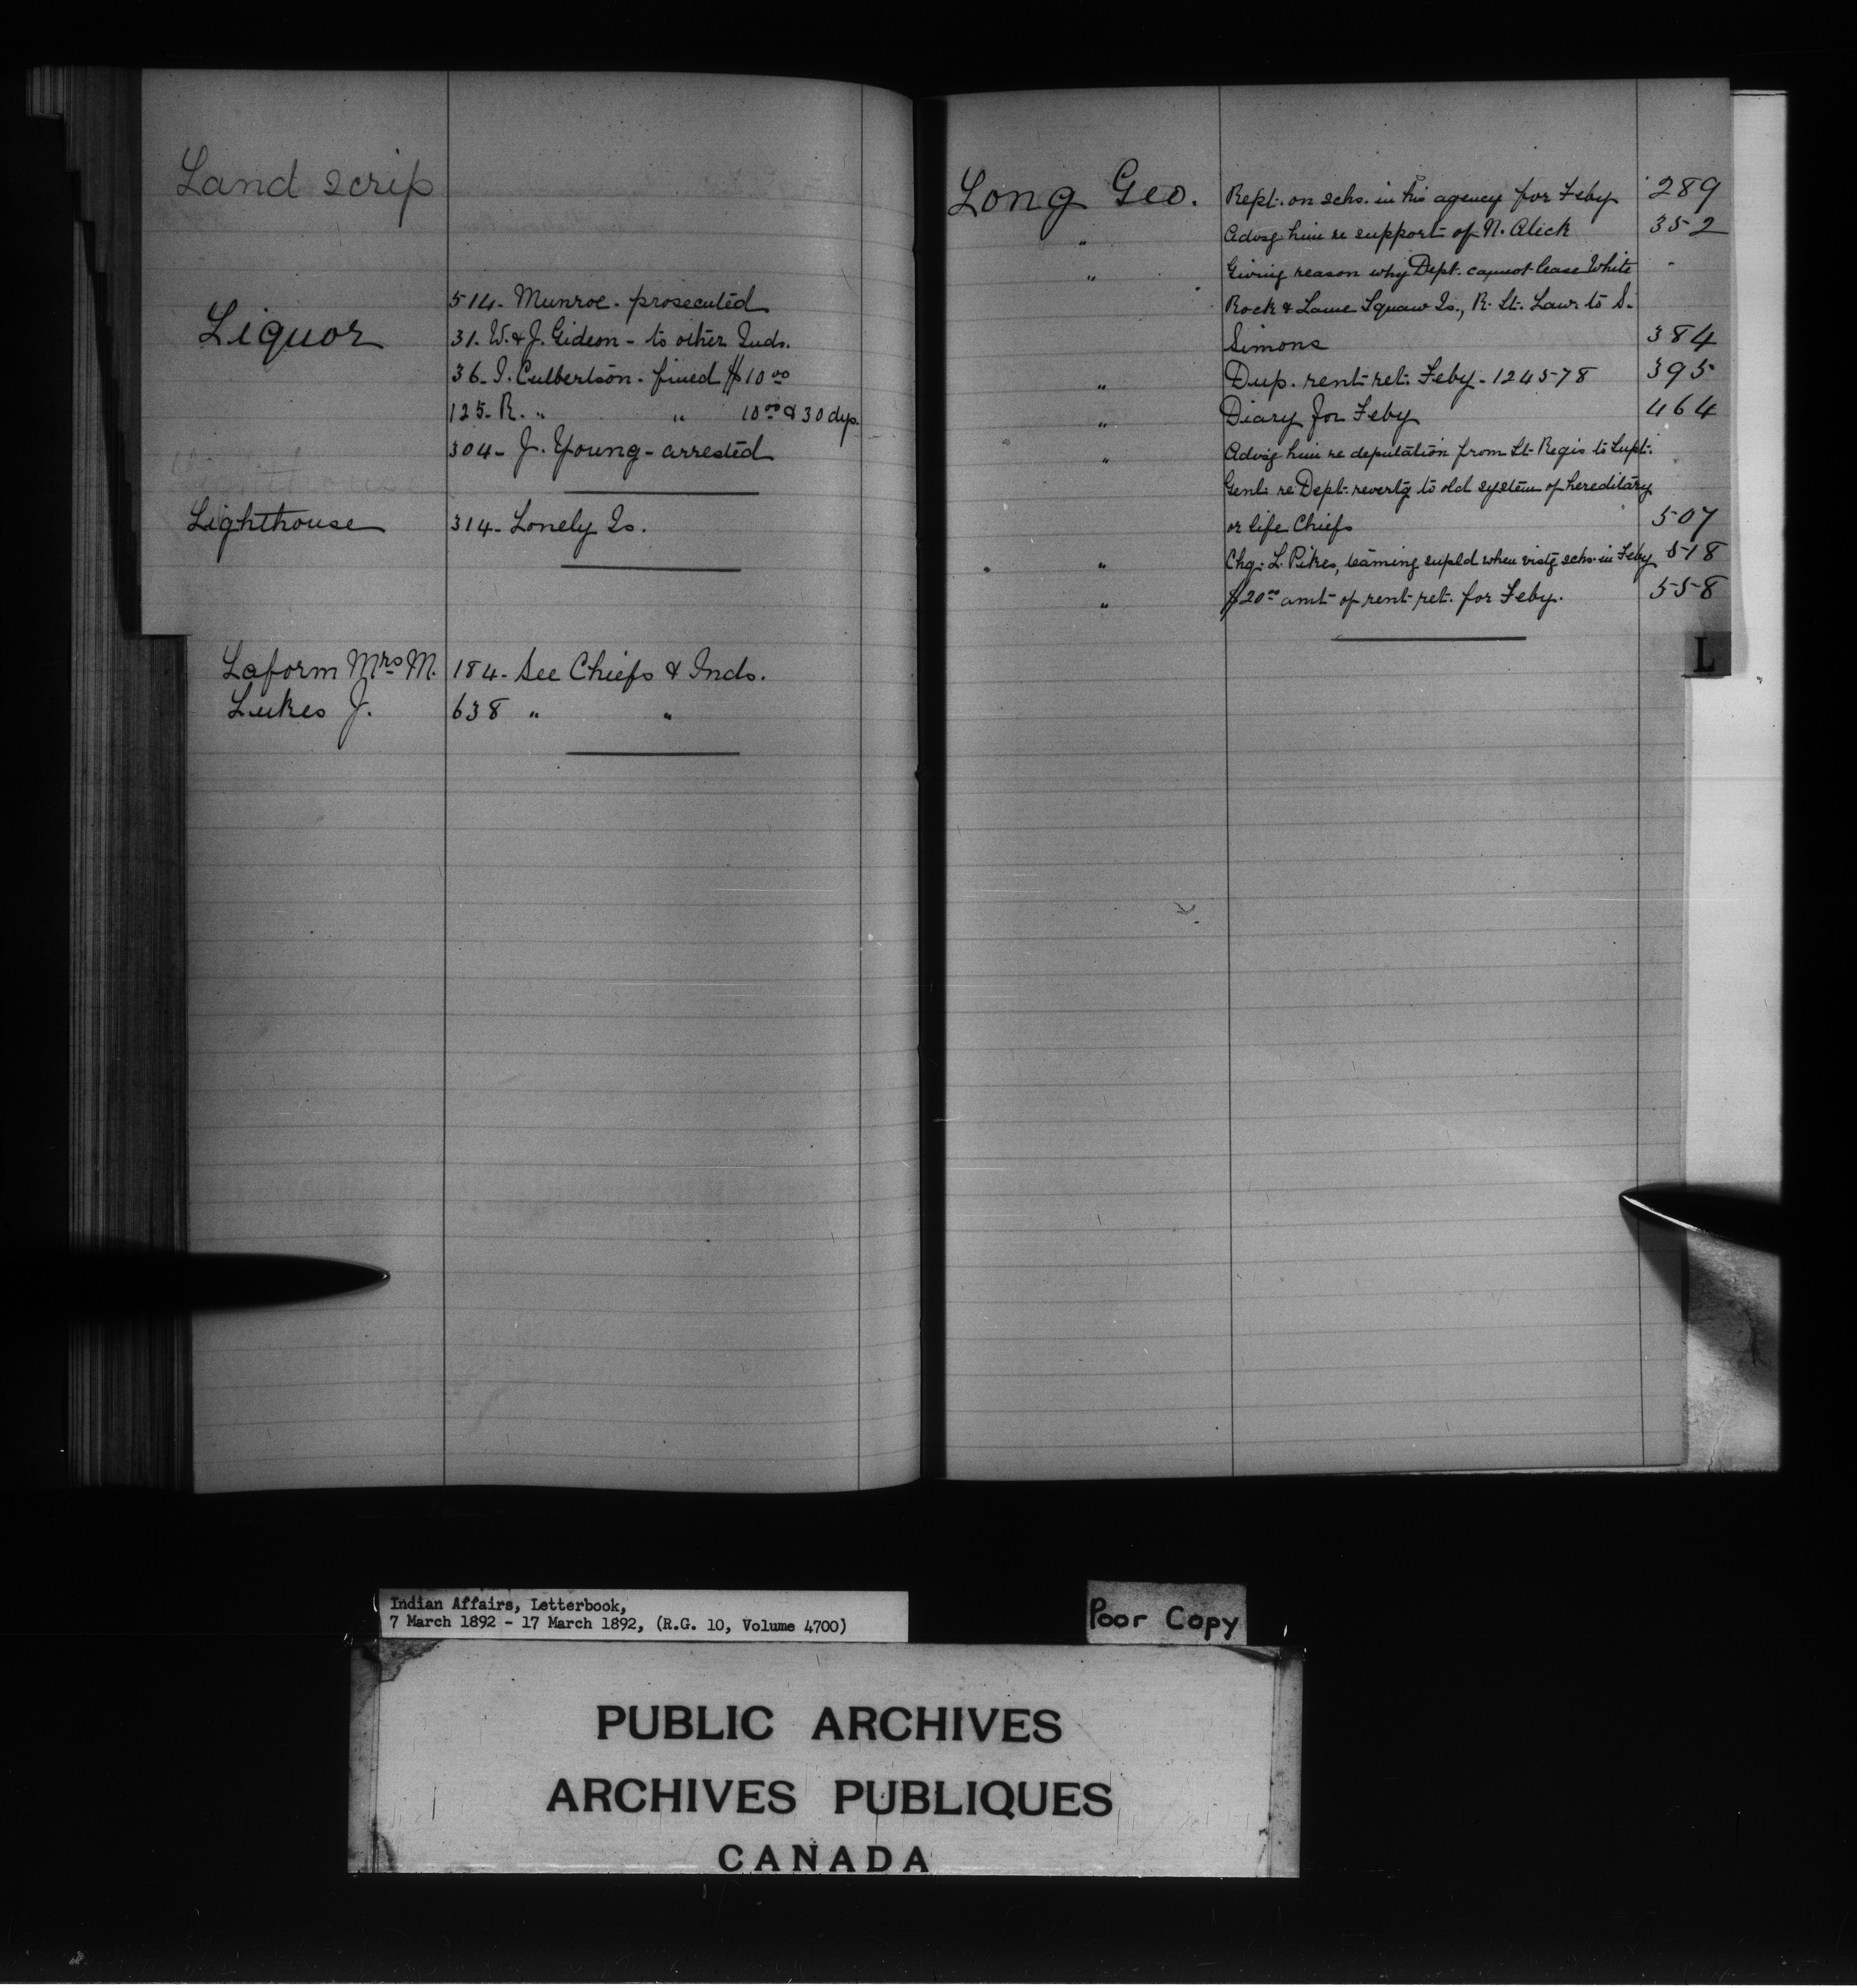 Land scrip
514- Munroe- prosecuted
Liquor
31- W. & J. Gideon - to other Inds.
36- I. Culbertson- fined $10 00
125- R. " " 10 00 & 30 dys.
304- J. Young- arrested
Lighthouse 314- Lonely Is.
Laform Mrs M. 184- See Chiefs & Inds.
Lukes J. 638 " "
Long Geo. Rept. on schs. in his agency for Feby 289
" Advsg him re support of N. Alick 352
" Giving reason why Dept. cannot lease White
Rock & Lame Squaw Is., R. St. Law. to S.
Simons 384
" Dup. rent ret. Feby- 124578 395
" Diary for Feby 464
" Advsg him re deputation from St. Regis to Supt.
Genl. re Dept. revertg to old system of hereditary
or life Chiefs 507
" Chq. L. Pikes, teaming supld when vistg schs. in Feby 518
" $20 00 amt of rent ret. for Feby. 558
L
Indian Affairs, Letterbook,
7 March 1892 - 17 March 1892, (R.G. 10, Volume 4700)
Poor Copy
PUBLIC ARCHIVES
ARCHIVES PUBLIQUES
CANADA